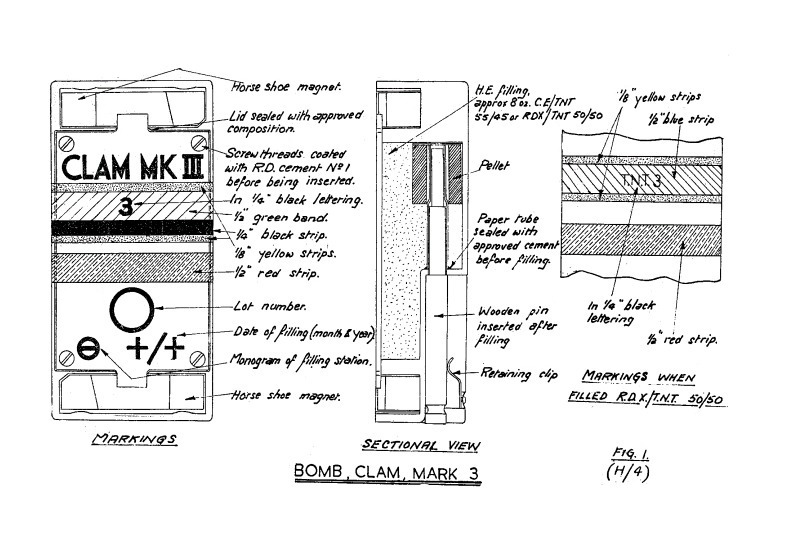 Horse shoe magnet.
Lid sealed with approved
composition.
Screw threads coated
with R.D. cement Nº 1
before being inserted.
In 1/4" black lettering.
1/2" green band.
1/4" black strip.
1/8" yellow strips.
1/2" red strip.
Lot number.
Date of filling (month & year)
Monogram of filling station.
Horse shoe magnet.
CLAM MK III
3
+/+
MARKINGS
H.E. filling,
approx 8 oz. C.E/TNT
55/45 or RDX/TNT 50/50
Pellet
Paper tube
sealed with
approved cement
before filling.
Wooden pin
inserted after
filling
Retaining clip
SECTIONAL VIEW
1/8" yellow strips
1/2" blue strip
T.N.T. 3
In 1/4" black
lettering
1/2" red strip.
MARKINGS WHEN
FILLED R.D.X./T.N.T. 50/50
BOMB, CLAM, MARK 3
FIG. 1.
(H/4)